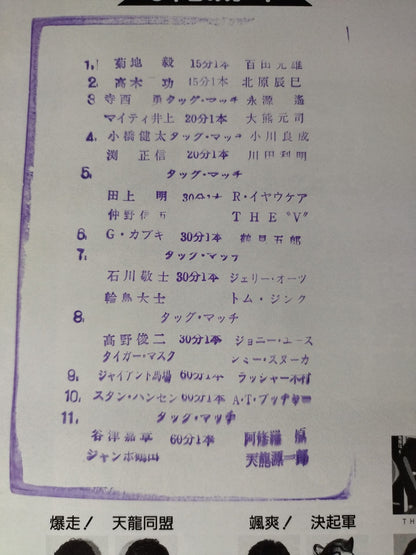 1. 菊地 毅 15分1本 百田光雄
2. 高木 功 15分1本 北原辰巳
3 寺西 勇 タッグ・マッチ 永源 遙
マイティ井上 20分1本 大熊元司
4. 小橋健太 タッグ・マッチ 小川良成
渕 正信 20分1本 川田利明
5. タッグ・マッチ
田上 明 30分1本 R・イヤウケア
仲野信市 THE "V"
6 G・カブキ 30分1本 鶴見五郎
7. タッグ・マッチ
石川敬士 30分1本 ジェリー・オーツ
輪島大士 トム・ジンク
8 タッグ・マッチ
高野俊二 30分1本 ジョニー・エース
タイガー・マスク ジミー・スヌーカ
9. ジャイアント馬場 60分1本 ラッシャー木村
10. スタン・ハンセン 60分1本 A・T・ブッチャー
11. タッグ・マッチ
谷津嘉章 60分1本 阿修羅 原
ジャンボ鶴田 天龍源一郎
爆走! 天龍同盟 颯爽! 決起軍
TH